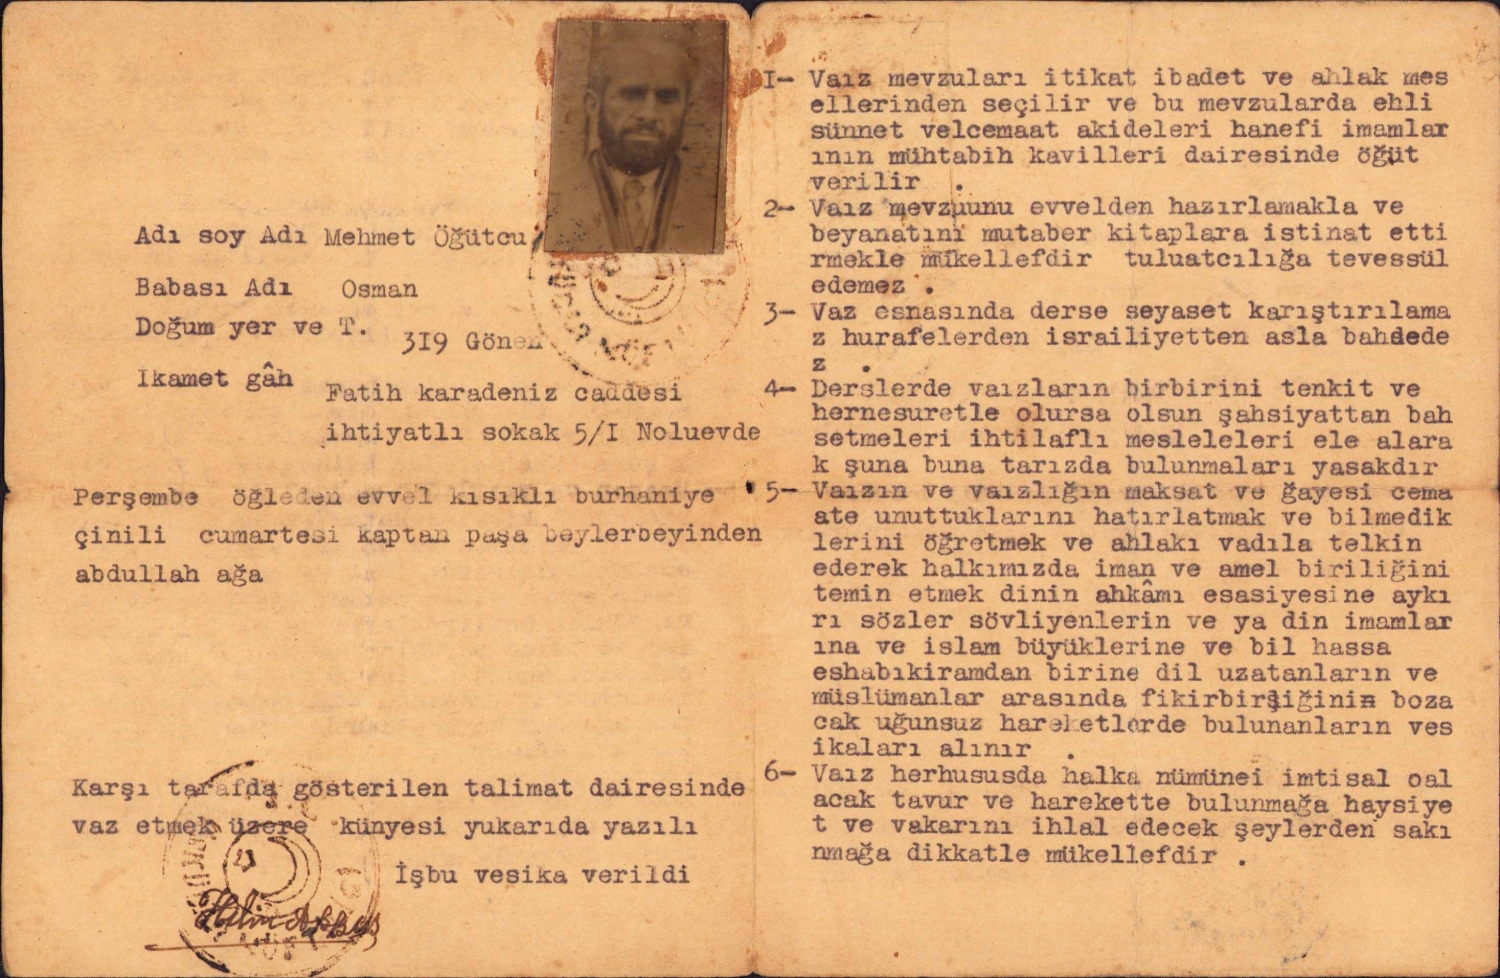 Adı soy Adı Mehmet Öğütcu
Babası Adı Osman
Doğum yer ve T.
319 Gönen
Ikamet gâh
Fatih karadeniz caddesi
ihtiyatlı sokak 5/I Noluevde
Perşembe öğleden evvel kısıklı burhaniye
çinili cumartesi kaptan paşa beylerbeyinden
abdullah ağa
Karşı tarafda gösterilen talimat dairesinde
vaz etmek üzere künyesi yukarıda yazılı
İşbu vesika verildi
I- Vaız mevzuları itikat ibadet ve ahlak mes
ellerinden seçilir ve bu mevzularda ehli
sünnet velcemaat akideleri hanefi imamlar
ının mühtabih kavilleri dairesinde öğüt
verilir .
2- Vaız mevzuunu evvelden hazırlamakla ve
beyanatını mutaber kitaplara istinat etti
rmekle mükellefdir tuluatcılığa tevessül
edemez .
3- Vaz esnasında derse seyaset karıştırılama
z hurafelerden israiliyetten asla bahdede
z .
4- Derslerde vaızların birbirini tenkit ve
hernesuretle olursa olsun şahsiyattan bah
setmeleri ihtilaflı mesleleleri ele alara
k şuna buna tarızda bulunmaları yasakdır
5- Vaızın ve vaızlığın maksat ve ğayesi cema
ate unuttuklarını hatırlatmak ve bilmedik
lerini öğretmek ve ahlakı vadıla telkin
ederek halkımızda iman ve amel biriliğini
temin etmek dinin ahkâmı esasiyesine aykı
rı sözler sövliyenlerin ve ya din imamlar
ına ve islam büyüklerine ve bil hassa
eshabıkiramdan birine dil uzatanların ve
müslümanlar arasında fikirbirliğinin boza
cak uğunsuz hareketlerde bulunanların ves
ikaları alınır .
6- Vaız herhususda halka nümünei imtisal oal
acak tavur ve harekette bulunmağa haysiye
t ve vakarını ihlal edecek şeylerden sakı
nmağa dikkatle mükellefdir .